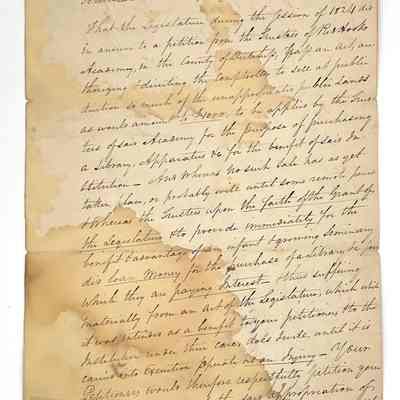 That the Legislature during the session of 1824 did
in answer to a petition from the Trustees of Red Hook
Academy, in the County of Dutchess, pass an act au-
thorizing & directing the Comptroller to sell at public
auction so much of the unappropriated public Lands
as would amount to to be applied by the Trus-
tees of said Academy for the purpose of purchasing
a Library, Apparatus &c for the benefit of said In-
stitution – And Whereas no such Sale has as yet
taken place, or probably will until some remote period
& Whereas the Trustees upon the faith of the Grant of
the Legislature & to provide immediately for the
benefit & advantage of an infant & growing Seminary
did loan Money for the purchase of a Library &c for
which they are paying Interest – thus suffering
materially from an act of the Legislature, which while
it was intended as a benefit to your petitioners & to the
Institution under their care, does indeed, until it is
carried into execution operate as an Injury – Your
Petitioners would therefore respectfully petition your
the said appropriation of